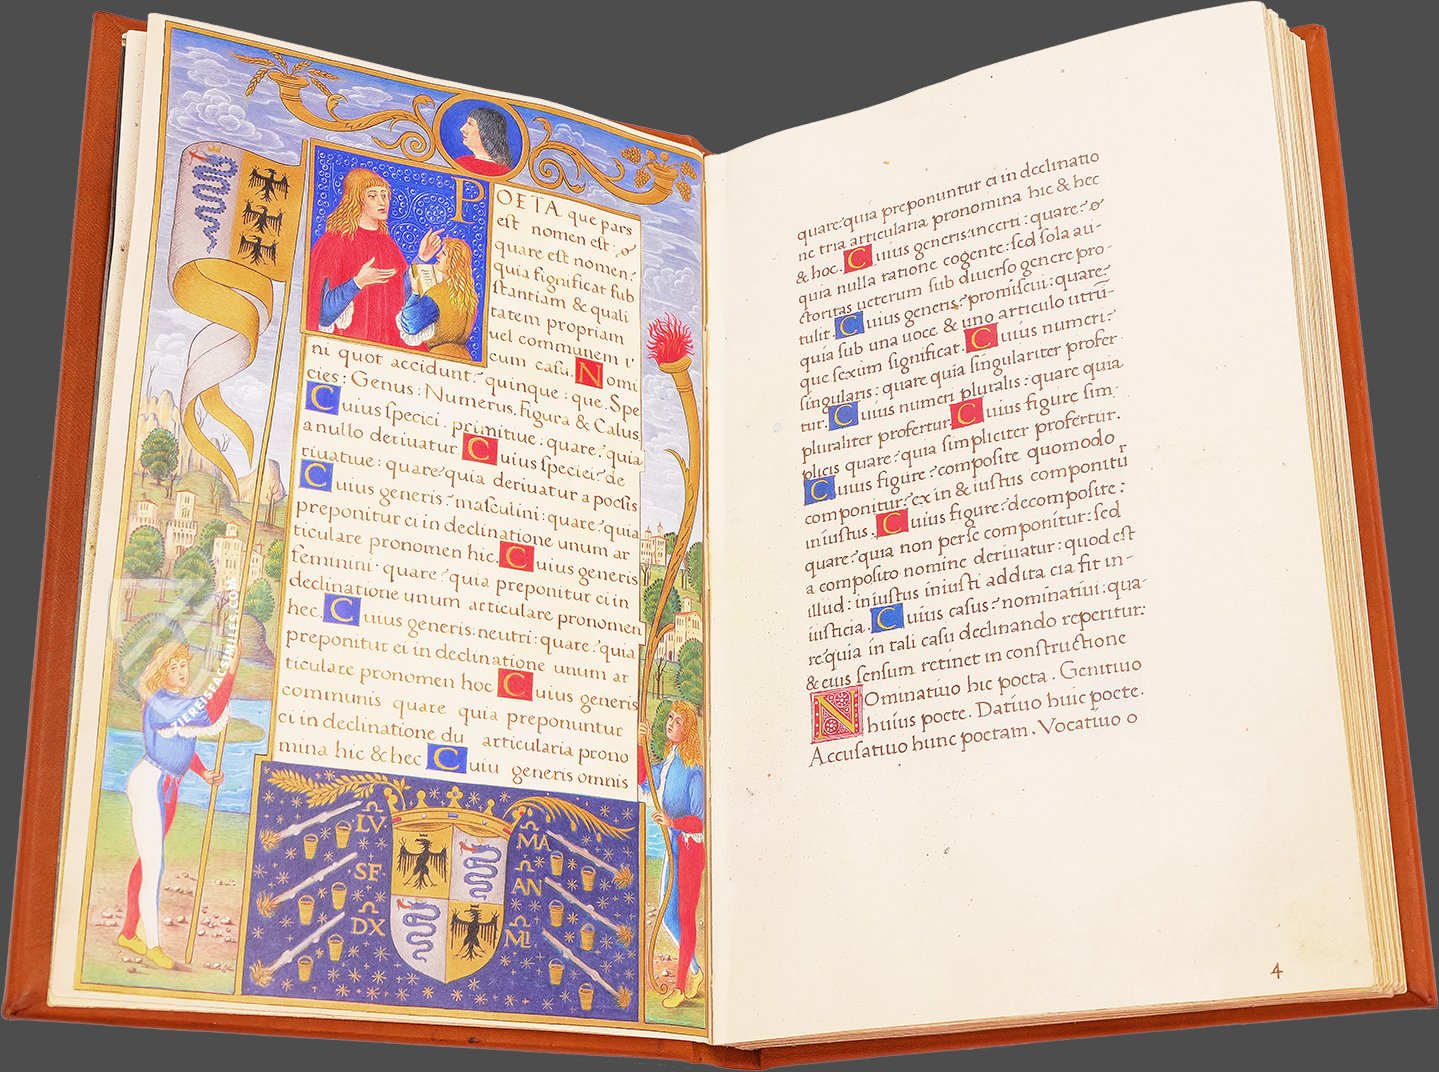 POETA que pars
est nomen est: o
quare est nomen?
quia significat sub
stantiam & quali
tatem propriam
uel communem t'
cum casu. Nomi
ni quot accidunt? quinque: que. Spe
cies: Genus: Numerus. Figura & Casus.
Cuius speciei. primitiue: quare? quia
a nullo deriuatur Cuius speciei? de
riuatiue: quare? quia deriuatur a poesis
Cuius generis? masculini: quare? quia
preponitur ei in declinatione unum ar
ticulare pronomen hic. Cuius generis
feminini: quare? quia preponitur ei in
declinatione unum articulare pronomen
hec. Cuius generis: neutri: quare? quia
preponitur ei in declinatione unum ar
ticulare pronomen hoc Cuius generis
communis quare quia preponuntur
ei in declinatione du articularia prono
mina hic & hec Cuiu generis omnis
LV
SF
DX
MA
AN
MI
ZIEREISFACSIMILES.COM
quare? quia preponuntur ei in declinatio
ne tria articularia pronomina hic & hec
& hoc. Cuius generis: incerti: quare? o
quia nulla ratione cogente: sed sola au-
ctoritas ueterum sub diuerso genere pro-
tulit. Cuius generis? promiscui: quare?
quia sub una uoce & uno articulo utrū-
que sexum significat. Cuius numeri?
singularis: quare quia singulariter profer
tur. Cuius numeri pluralis: quare quia
pluraliter profertur. Cuius figure sim-
plicis quare? quia simpliciter profertur.
Cuius figure? composite quomodo
componitur? ex in & iustus componitur
iniustus. Cuius figure? decomposite:
quare? quia non per se componitur: sed
a composito nomine deriuatur: quod est
illud: iniustus iniusti addita cia fit in-
iusticia. Cuius casus? nominatiui: qua-
re? quia in tali casu declinando reperitur:
& eius sensum retinet in constructione
NOminatiuo hic poeta. Genitiuo
huius poete. Datiuo huic poete.
Accusatiuo hunc poetam. Vocatiuo o
4